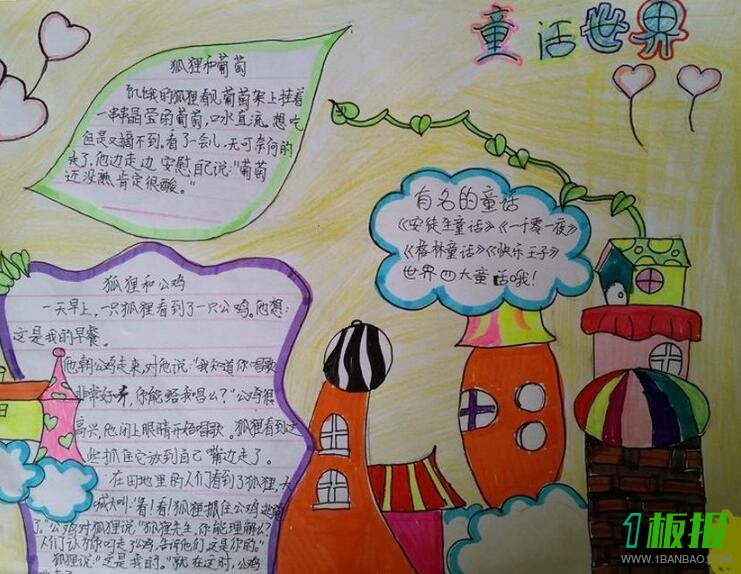 童话世界
狐狸和葡萄
饥饿的狐狸看见葡萄架上挂着
一串串晶莹的葡萄,口水直流。想吃
但是又摘不到。看了一会儿,无可奈何的
走了,他边走边安慰自己说:"葡萄
还没熟肯定很酸。"
有名的童话
《安徒生童话》《一千零一夜》
《格林童话》《快乐王子》
世界四大童话哦!
狐狸和公鸡
一天早上,一只狐狸看到了一只公鸡。他想:
这是我的早餐。
他朝公鸡走来,对他说:"我知道你唱歌
非常好听,你能给我唱么?"公鸡很
高兴,他闭上眼睛开始唱歌。狐狸看到这
些抓住它放到自己嘴边走了。
在田地里的人们看到了狐狸,大
喊大叫:"看!看!狐狸抓住公鸡逃
了。"公鸡对狐狸说:"狐狸先生,你能理解么?
人们认为你叼走了公鸡,告诉他们这是你的。"
狐狸说:"这是我的。"就在这时,公鸡
1板报
WWW.1BANBAO.COM